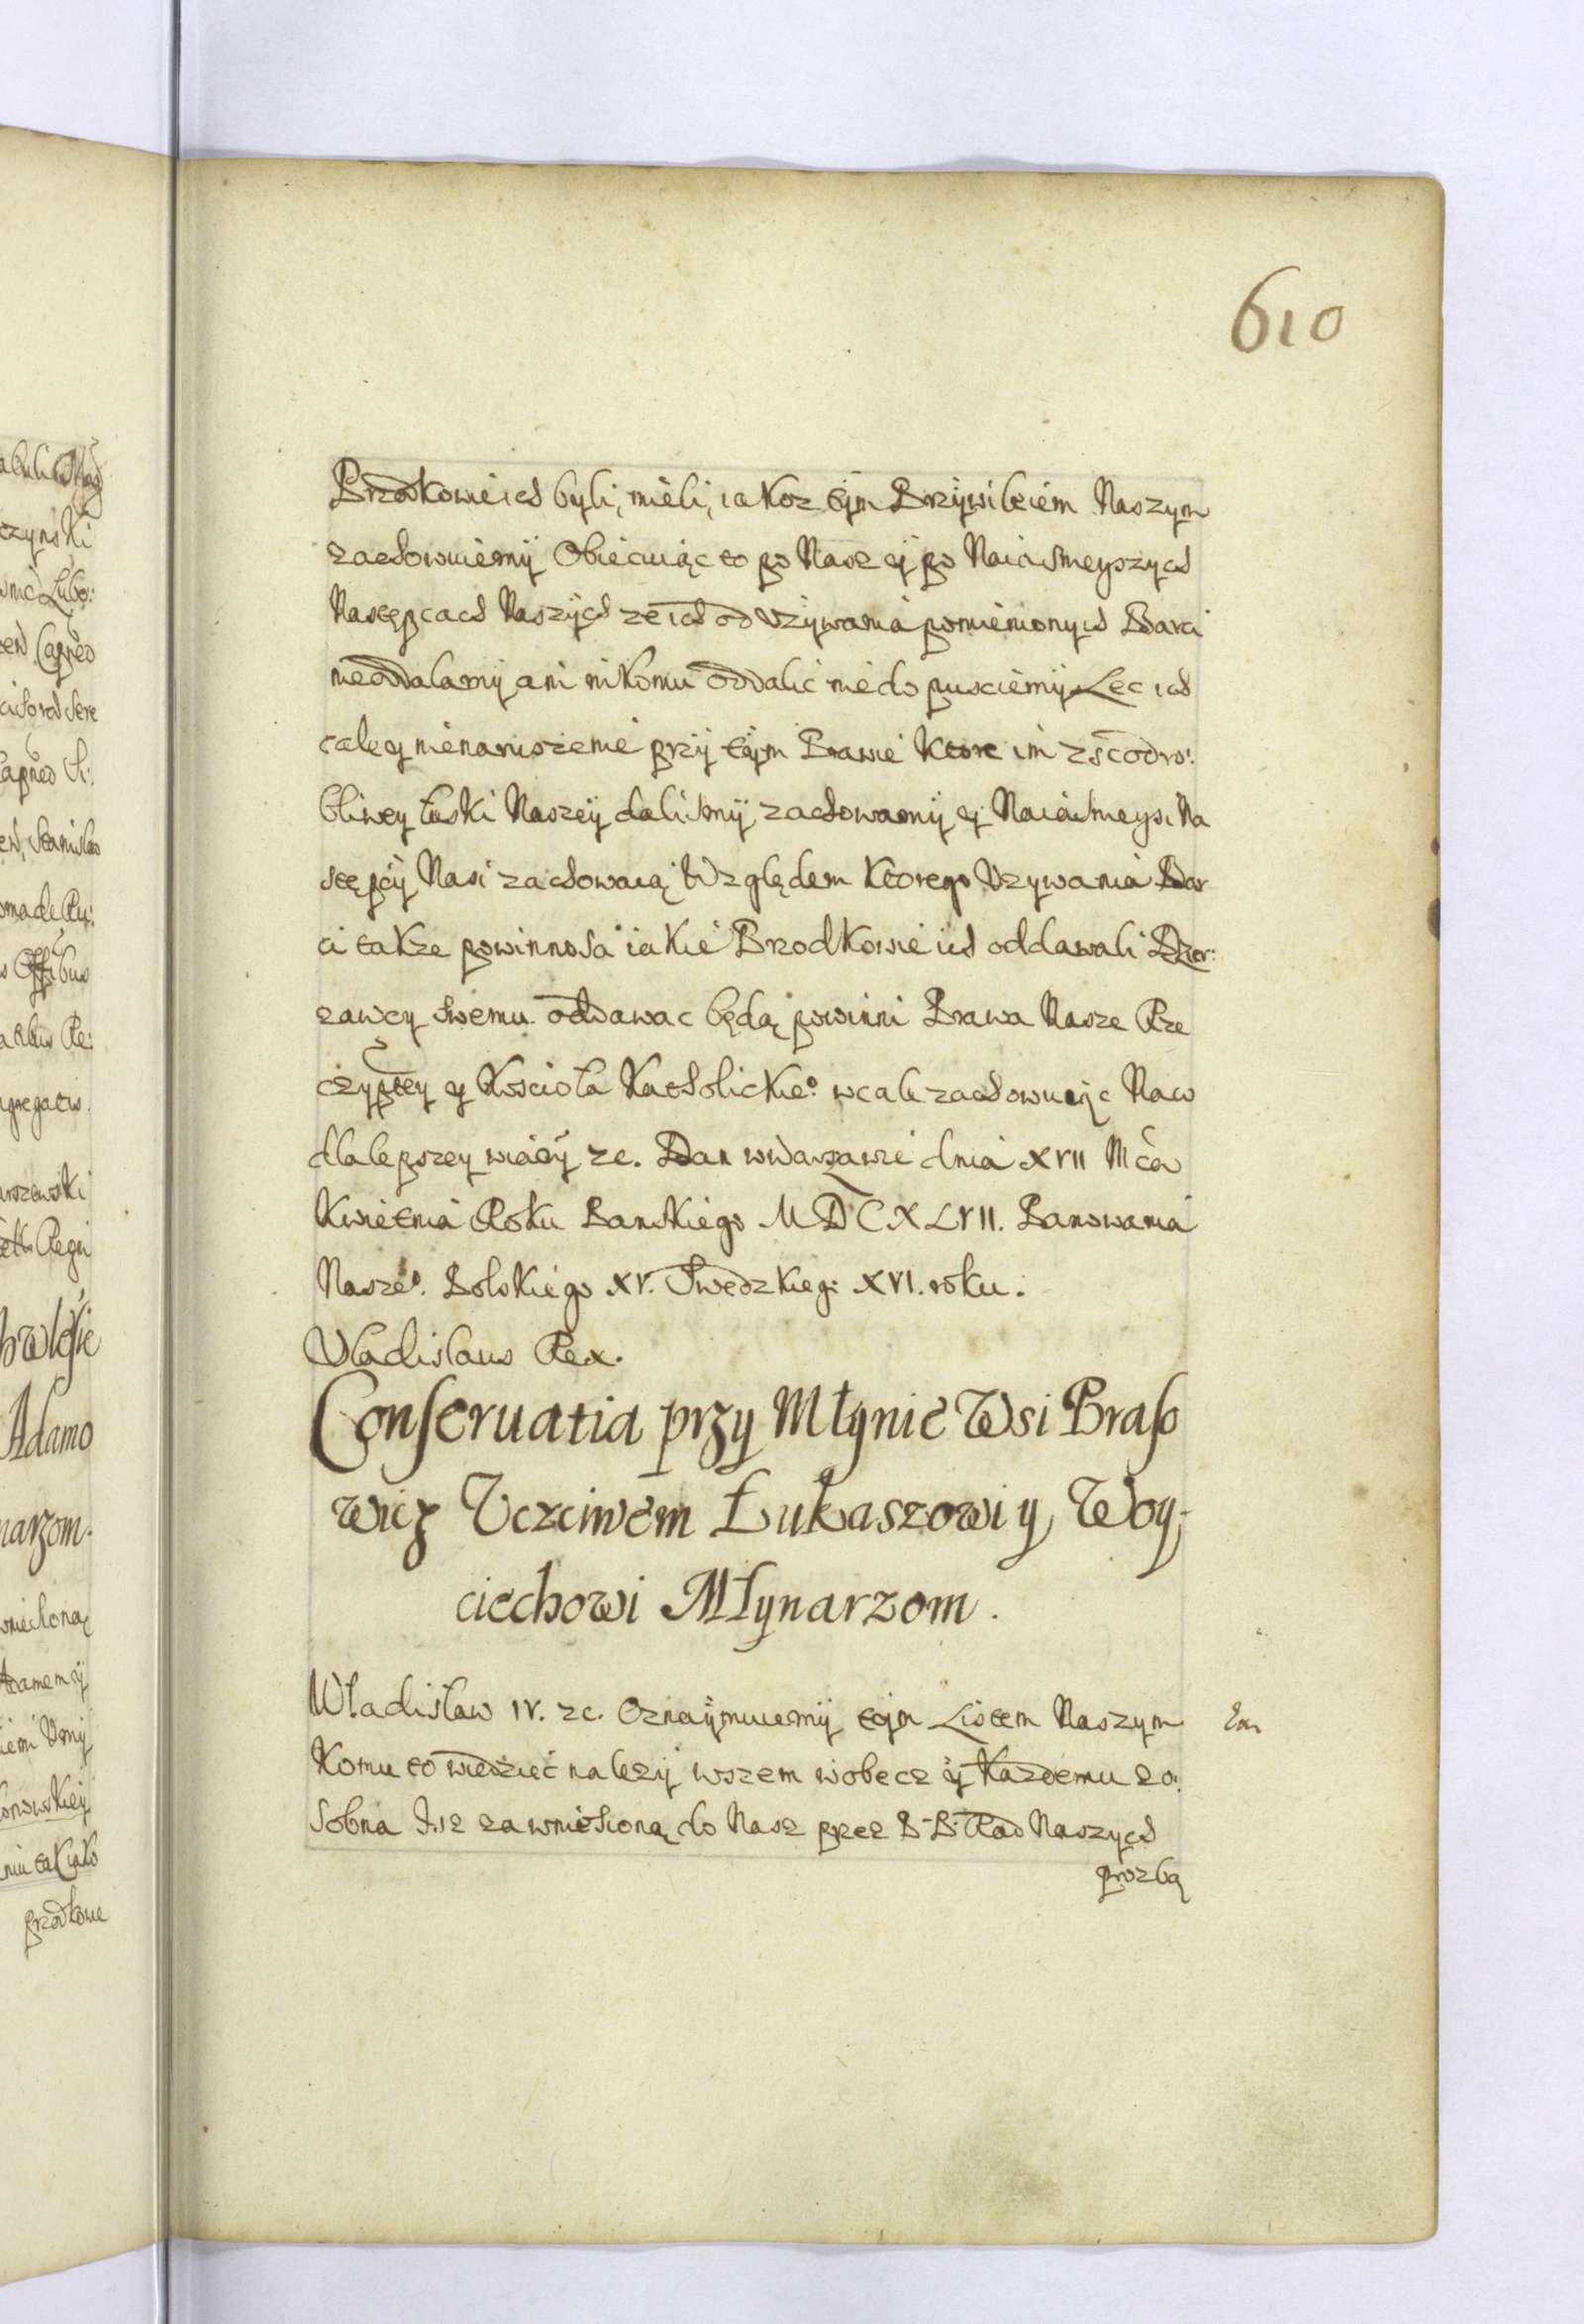 610
Przodkowie ich byli, mieli, iakoz tÿm Przÿwileiem Naszym
zachowuiemÿ Obiecuiąc to po Nasz ÿ po Naiasmeyszych
Następcach Naszÿch ze ich od Vzÿwania pomienionych Barci
nieoddalamÿ ani nikomu oddalić niedopusciemÿ Lec ich
całe y nienaruszenie przÿ tÿm Prawie Ktore im z scodro:
bliwey łaski Naszeÿ dalismÿ zachowamÿ ÿ Naiasmeysi Na
stępcÿ Nasi zachowaią Względem Ktorego Vzywania Bar
ci takze powinnosci iakie Przodkowie ich oddawali Dzier:
zawcy swemu oddawac będą powinni Prawa Nasze Rze
czyptey y Koscioła Katholickieo. wcale zachowuiąc Naco
dla lepszey wiary zc. Dan wWarszawie dnia XVII Mca
Kwietnia Roku Panskiego MDCXLVII. Panowania
Naszeo. Polskiego XV. Swedzkieg: XVI. roku.
Vladislaus Rex.
Conseruatia przy Młynie Wsi Braso
wicz Vczciwem Łukaszowi y Woy-
ciechowi Młynarzom.
Władisław IV. zc. Oznaÿmuiemÿ tÿm Listem Naszym
Komu to wiedzieć nalezÿ wszem wobecz ÿ Kazdemu zo:
Sobna Isz za wniesioną do Nasz przez P. P. Rad Naszych
prozbą